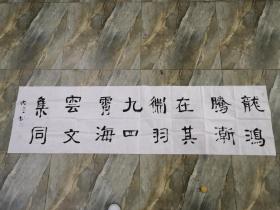 龍騰在衢九霄雲集
鴻漸其羽四海文同